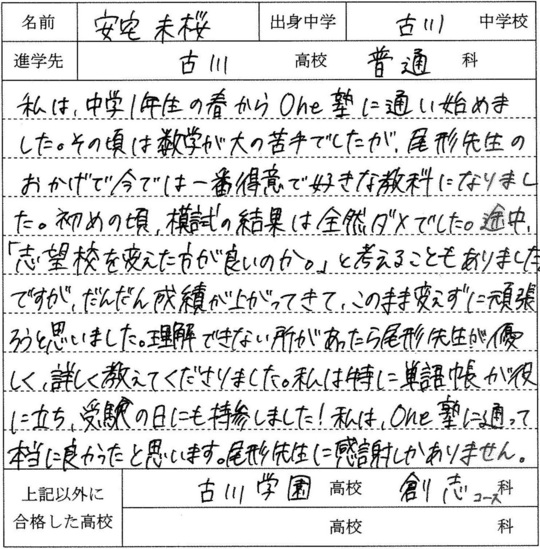 名前 安宅 未桜 出身中学 古川 中学校
進学先 古川 高校 普通 科
私は、中学1年生の春からOne塾に通い始めま
した。その頃は数学が大の苦手でしたが、尾形先生の
おかげで今では一番得意で好きな教科になりまし
た。初めの頃、模試の結果は全然ダメでした。途中、
「志望校を変えた方が良いのか。」と考えることもありました
ですが、だんだん成績が上がってきて、このまま変えずに頑張
ろうと思いました。理解できない所があったら尾形先生が優
しく、詳しく教えてくださりました。私は特に単語帳が役
に立ち、受験の日にも持参しました!私は、One塾に通って
本当に良かったと思います。尾形先生に感謝しかありません。
上記以外に合格した高校 古川学園 高校 創志コース 科
高校 科